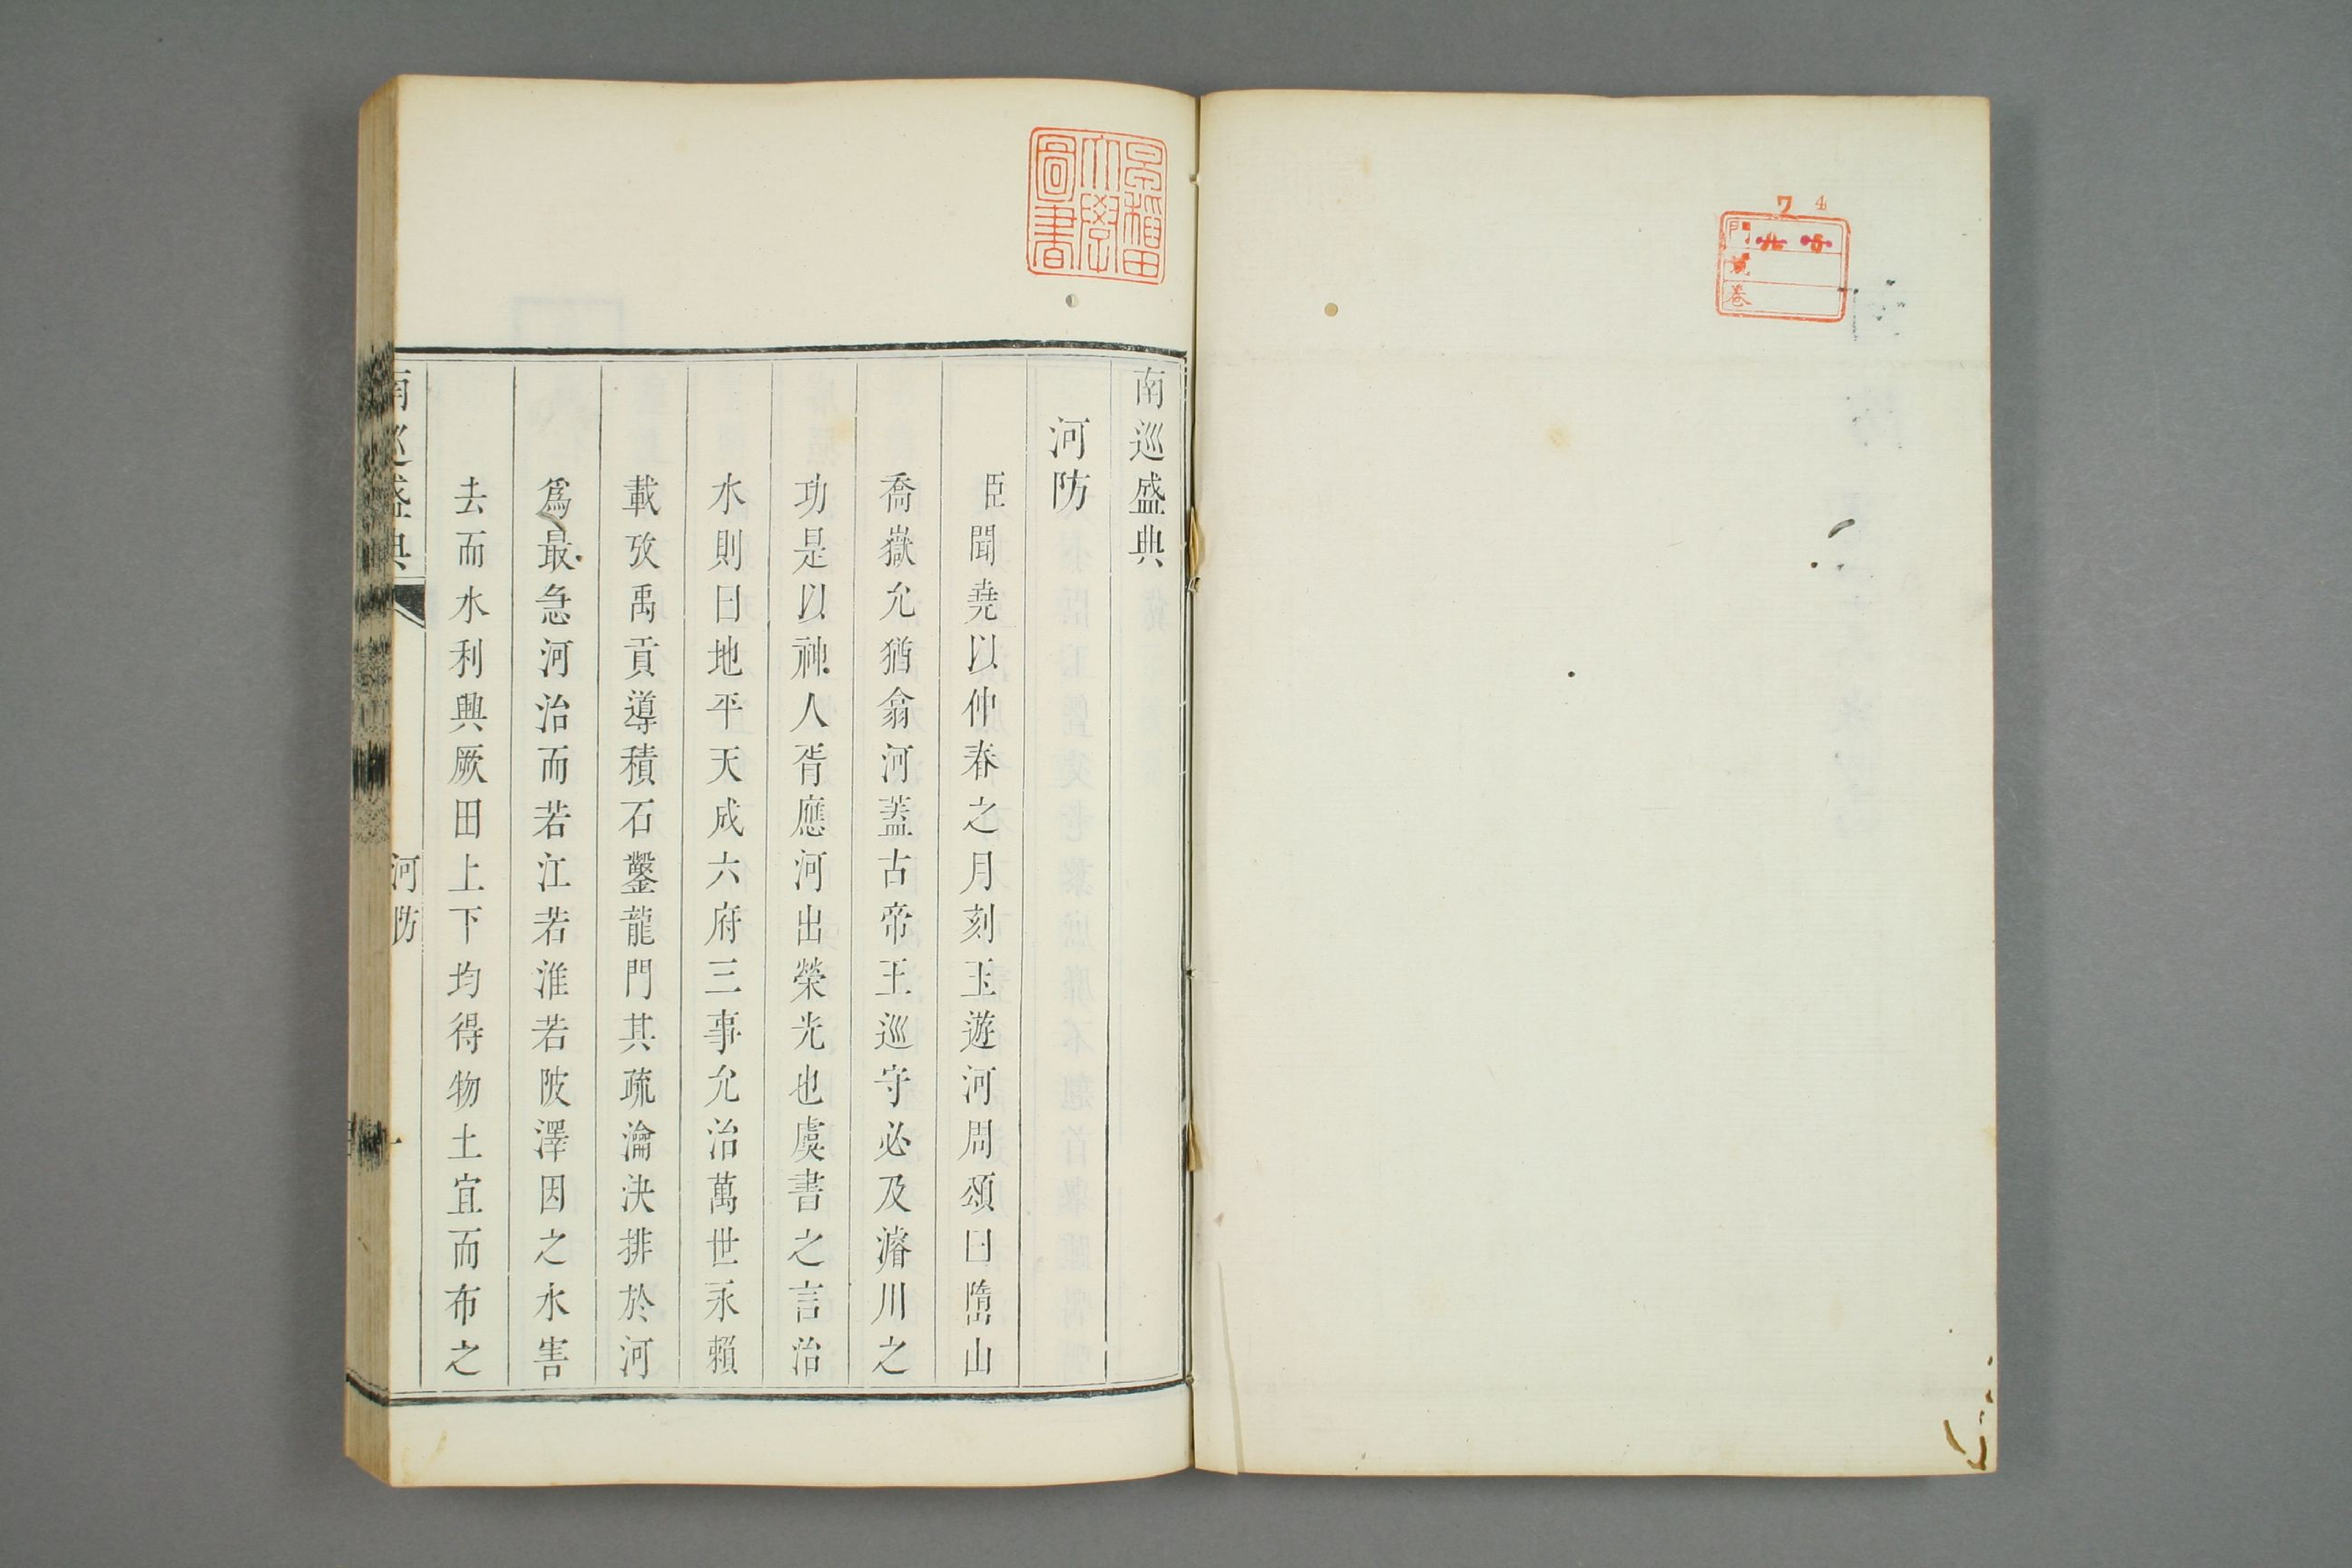 7 4
門
號
卷
早稲田
大學
圖書
南巡盛典
河防
臣聞堯以仲春之月刻玉遊河周頌曰嶞山
喬嶽允猶翕河蓋古帝王巡守必及濬川之
功是以神人胥應河出榮光也虞書之言治
水則曰地平天成六府三事允治萬世永賴
載攷禹貢導積石鑿龍門其疏瀹決排於河
爲最急河治而若江若淮若陂澤因之水害
去而水利興厥田上下均得物土宜而布之
南巡盛典
河防
一